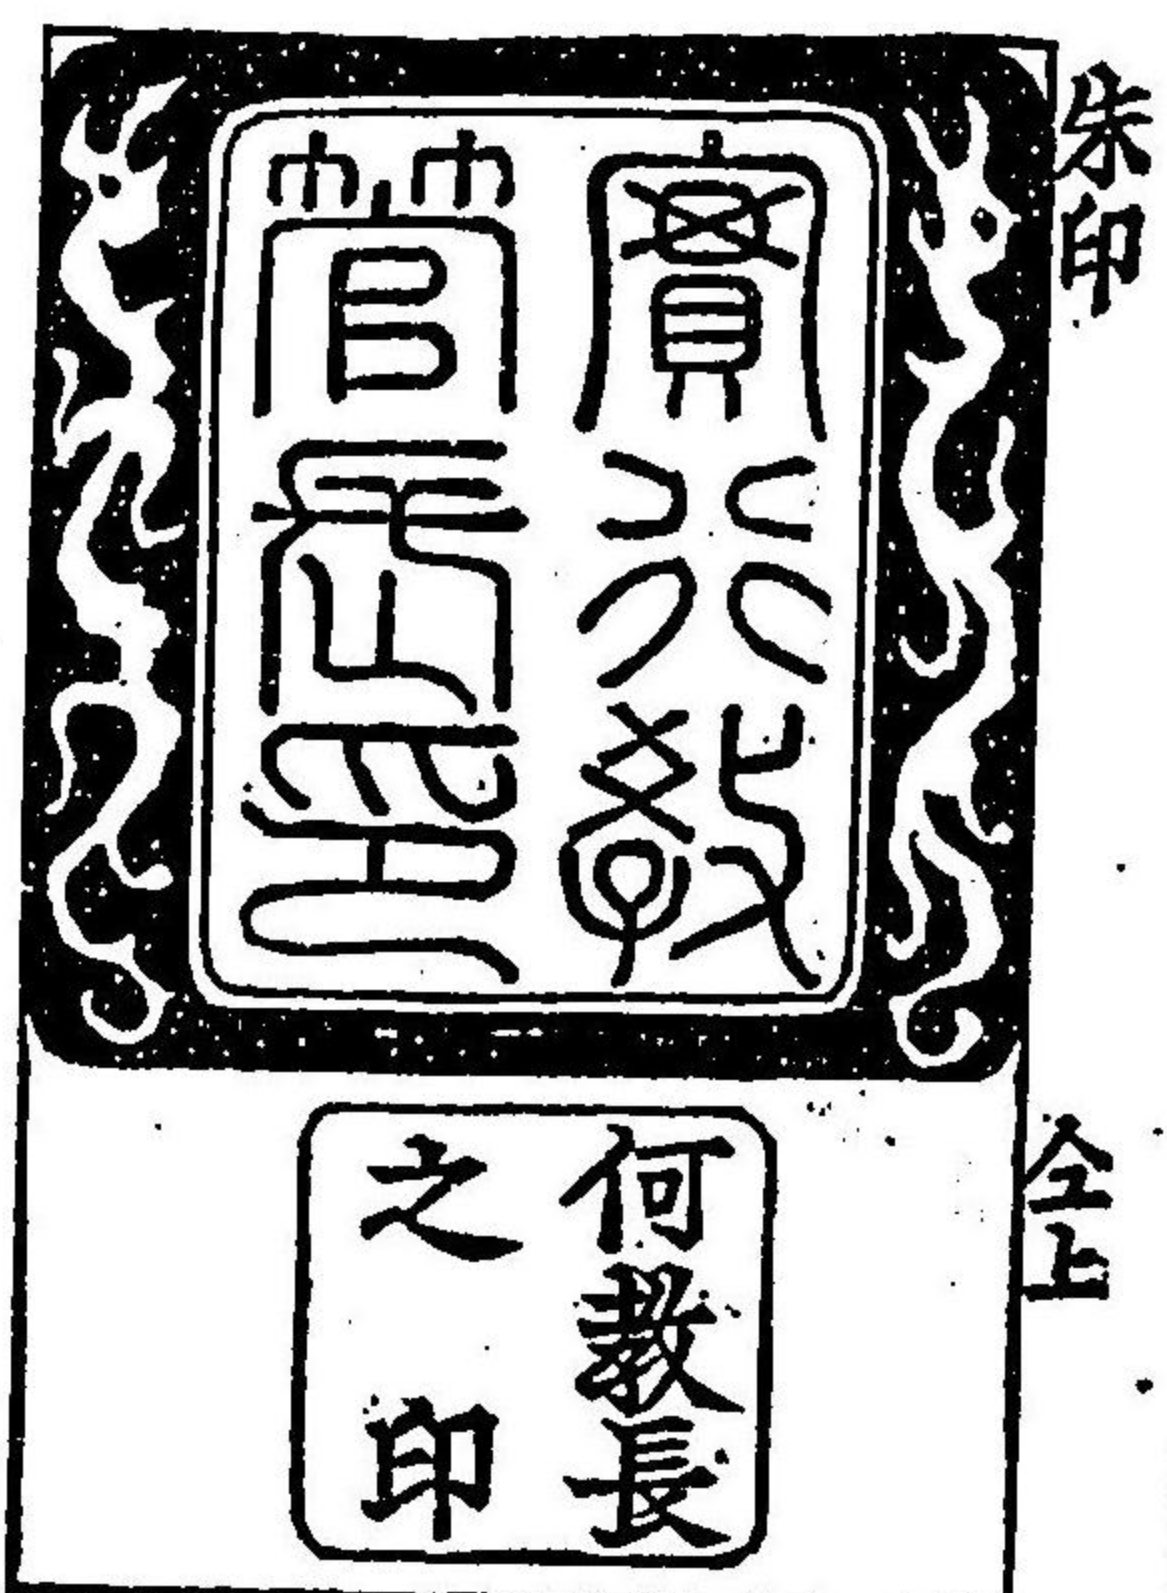 朱印
實行教
管長印
仝上
何教長
之印